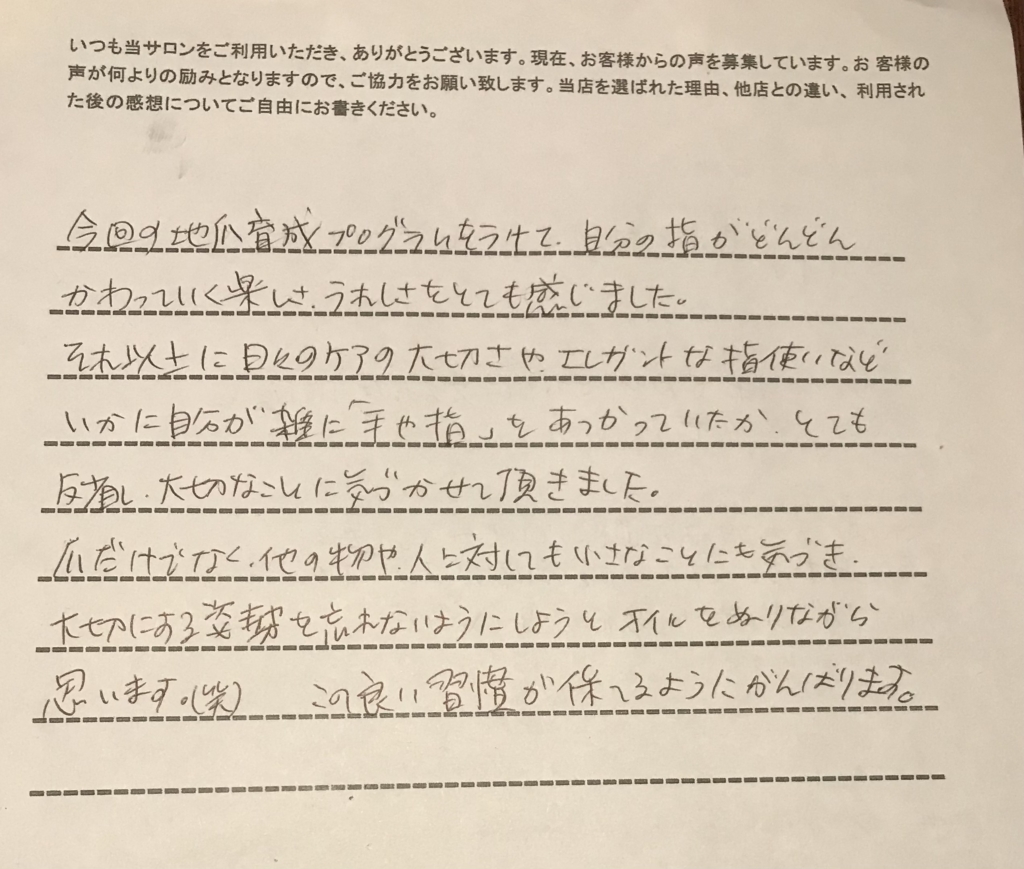 いつも当サロンをご利用いただき、ありがとうございます。現在、お客様からの声を募集しています。お 客様の
声が何よりの励みとなりますので、ご協力をお願い致します。当店を選ばれた理由、他店との違い、利用され
た後の感想についてご自由にお書きください。
今回の地爪育成プログラムをうけて、自分の指がどんどん
かわっていく楽しさ、うれしさをとても感じました。
それ以上に日々のケアの大切さや、エレガントな指使いなど
いかに自分が雑に「手や指」をあつかっていたか、とても
反省し、大切なことに気づかせて頂きました。
爪だけでなく、他の物や、人に対しても小さなことにも気づき、
大切にする姿勢を忘れないようにしようとオイルをぬりながら
思います。(笑) この良い習慣が保てるようにがんばります。